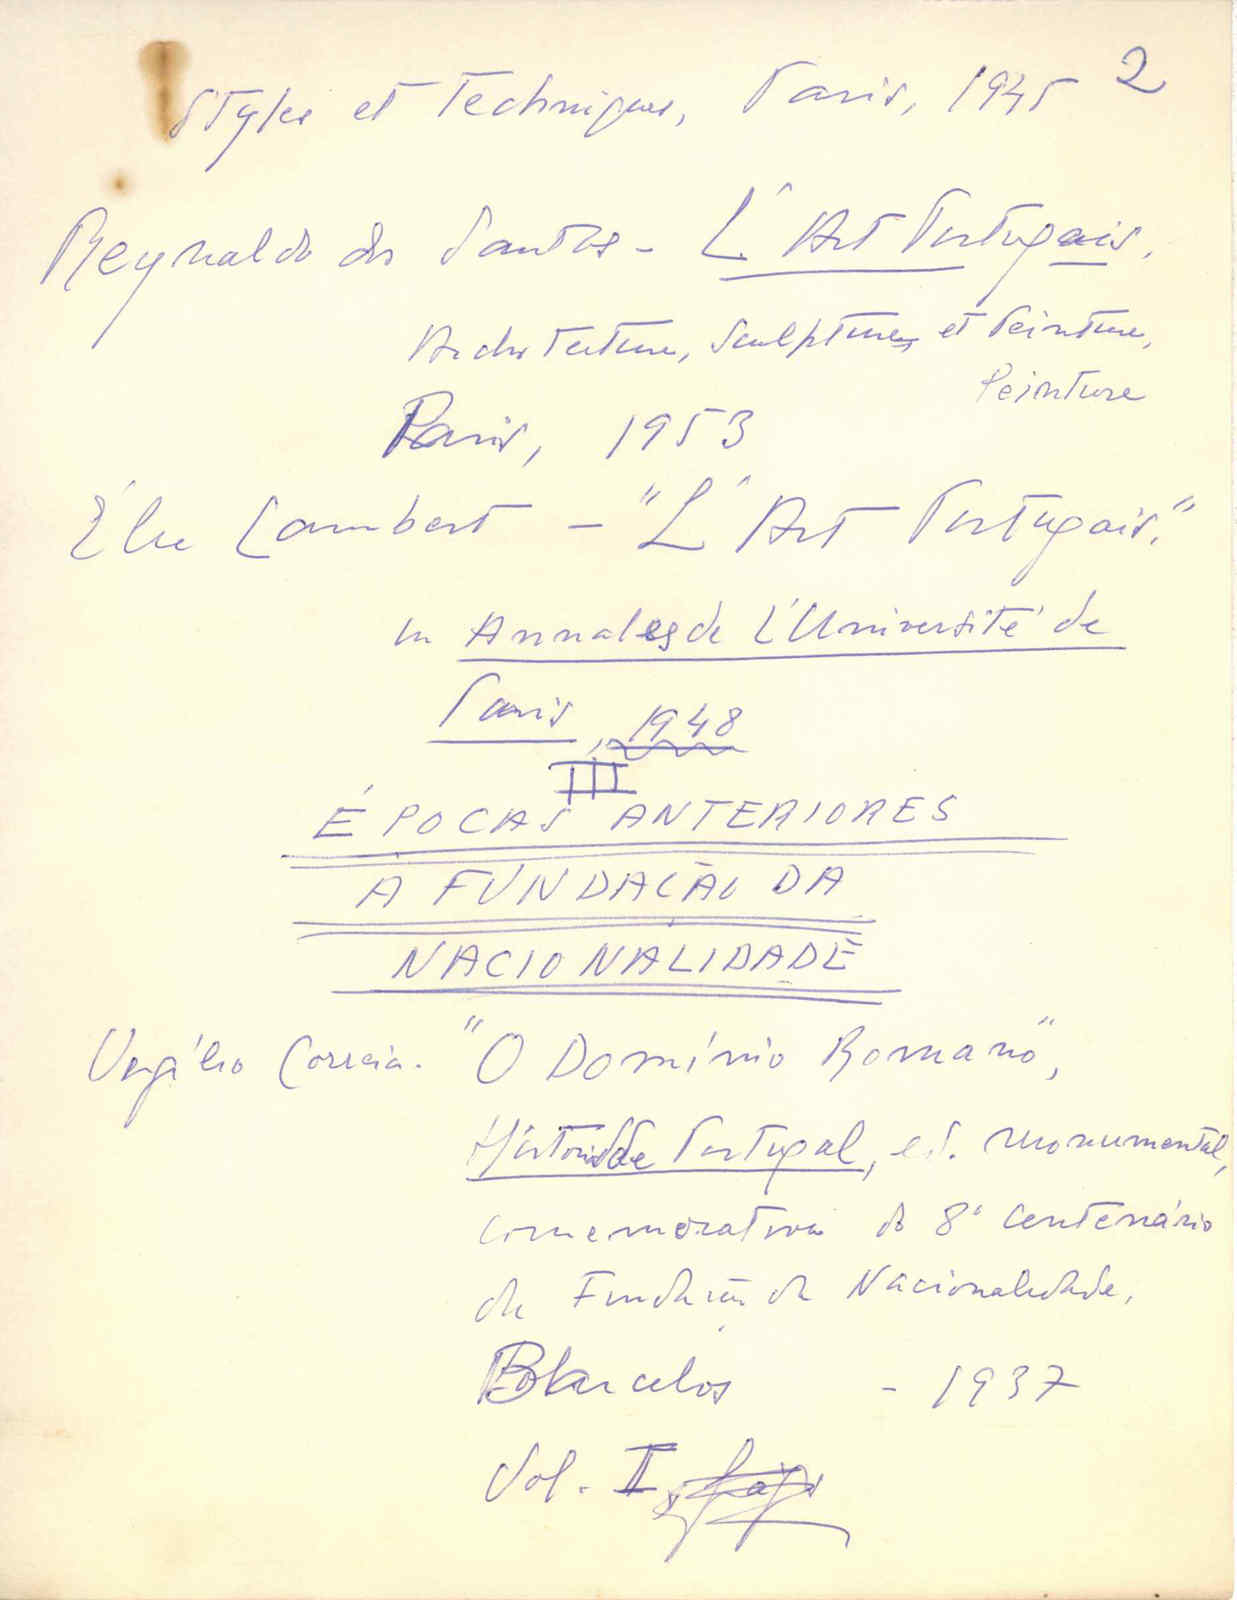 2
Styles et Techniques, Paris, 1945
Reynaldo dos Santos - L'Art Portugais.
Architecture, Sculpture, et Peinture,
Peinture
Paris, 1953
Élie Lambert - "L'Art Portugais."
in Annales de L'Université de
Paris, 1948
III
ÉPOCAS ANTERIORES
A FUNDAÇÃO DA
NACIONALIDADE
Vergílio Correia. "O Domínio Romano",
História de Portugal, ed. monumental,
comemorativa do 8º Centenário
da Fundação da Nacionalidade,
Barcelos - 1937
Vol. II,